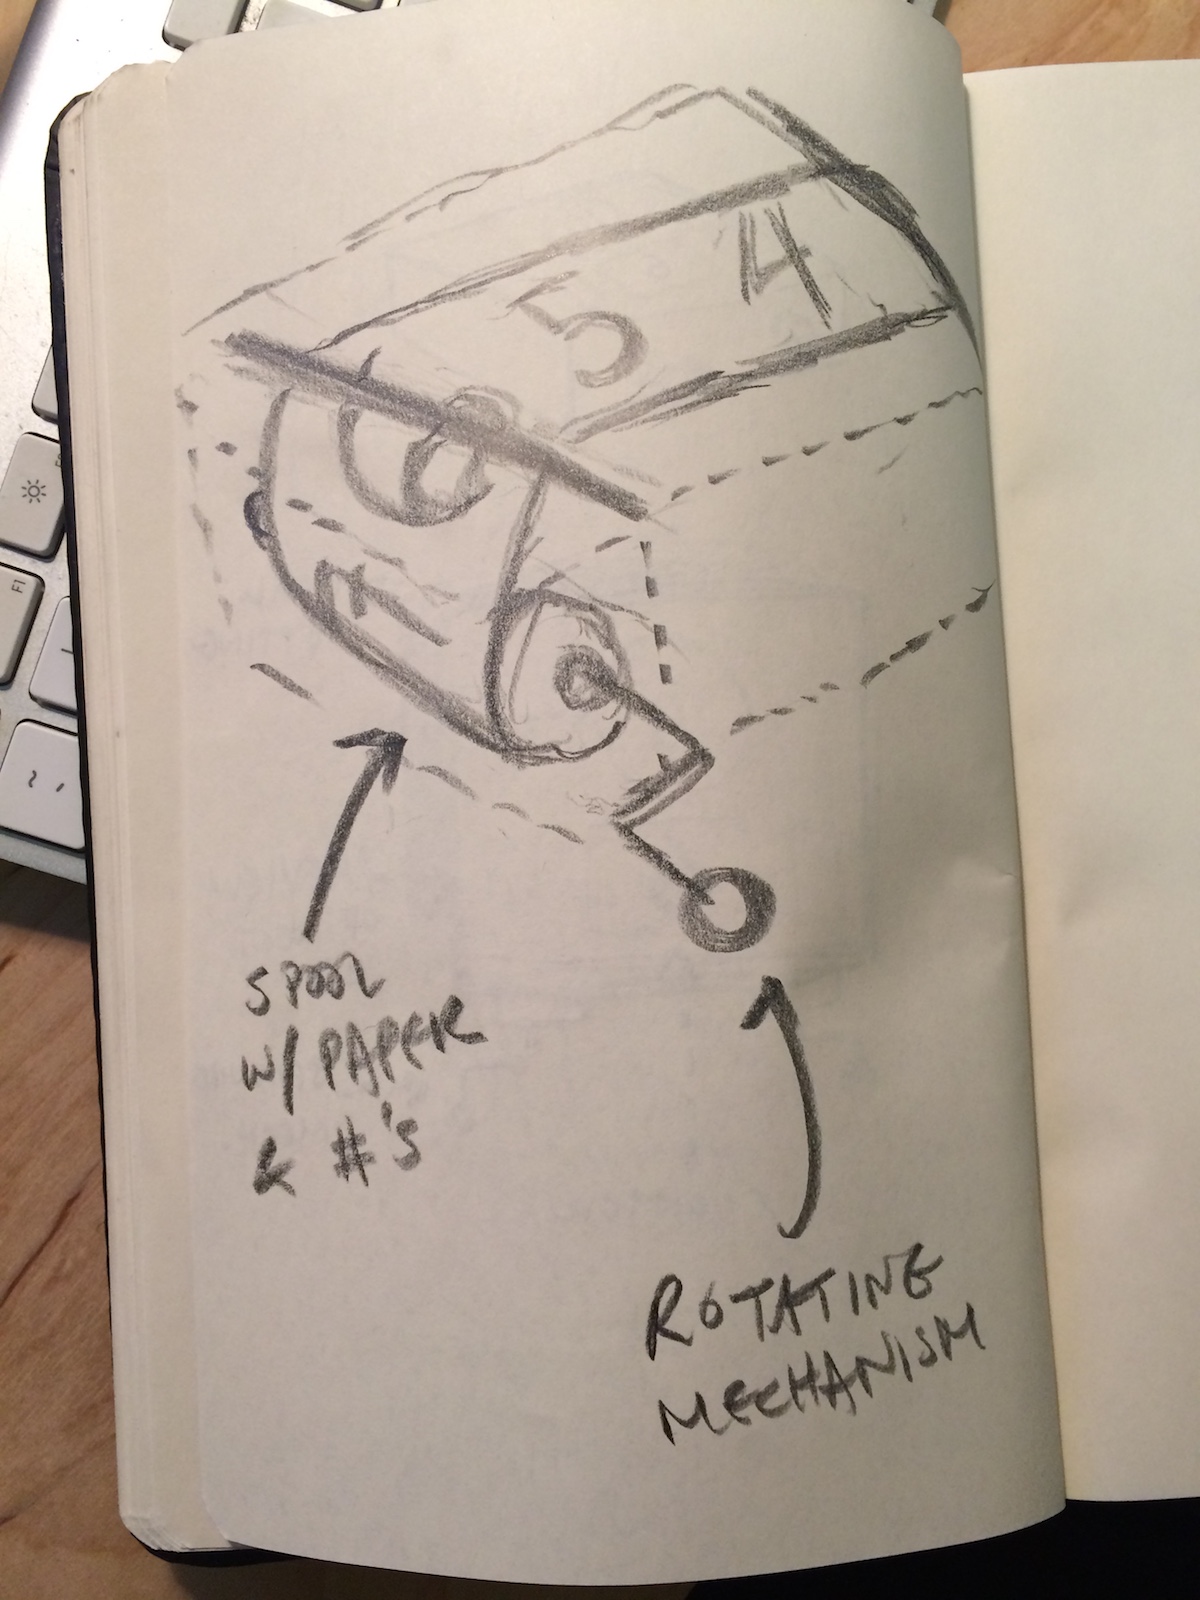 5 4
7
SPOOL
W/ PAPER
& #'S
ROTATING
MECHANISM
F1